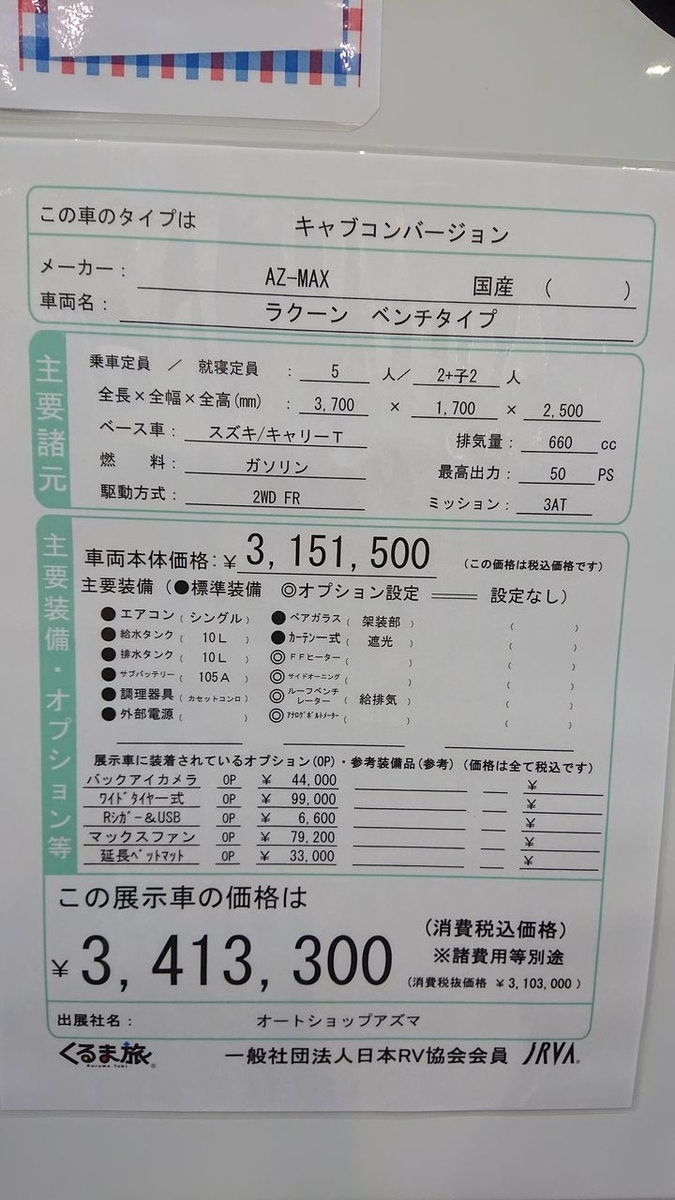 この車のタイプは キャブコンバージョン
メーカー： AZ-MAX 国産 （ ）
車両名： ラクーン ベンチタイプ
主要諸元
乗車定員 ／ 就寝定員 ： 5 人／ 2+子2 人
全長×全幅×全高(mm) ： 3,700 × 1,700 × 2,500
ベース車： スズキ/キャリーT 排気量： 660 cc
燃 料： ガソリン 最高出力： 50 PS
駆動方式： 2WD FR ミッション： 3AT
主要装備・オプション等
車両本体価格：￥3,151,500 （この価格は税込価格です）
主要装備（●標準装備 ◎オプション設定 ―― 設定なし）
●エアコン（シングル） ●ペアガラス（ 架装部 ） （ ）
●給水タンク（ 10L ） ●カーテン一式（ 遮光 ） （ ）
●排水タンク（ 10L ） ◎FFヒーター（ ） （ ）
●サブバッテリー（ 105A ） ◎サイドオーニング（ ） （ ）
●調理器具（カセットコンロ） ◎ルーフベンチレーター（ 給排気 ） （ ）
●外部電源（ ） ◎ｱﾅﾛｸﾞﾎﾞﾙﾄﾒｰﾀｰ（ ） （ ）
展示車に装着されているオプション(OP)・参考装備品(参考)（価格は全て税込です）
バックアイカメラ OP ￥ 44,000 ￥
ﾜｲﾄﾞﾀｲﾔ一式 OP ￥ 99,000 ￥
Rｼｶﾞｰ＆USB OP ￥ 6,600 ￥
マックスファン OP ￥ 79,200 ￥
延長ﾍﾞｯﾄﾏｯﾄ OP ￥ 33,000 ￥
この展示車の価格は
￥3,413,300 （消費税込価格）
※諸費用等別途
（消費税抜価格 ￥3,103,000 ）
出展社名： オートショップアズマ
くるま旅 Kuruma Tabi 一般社団法人日本RV協会会員 JRVA